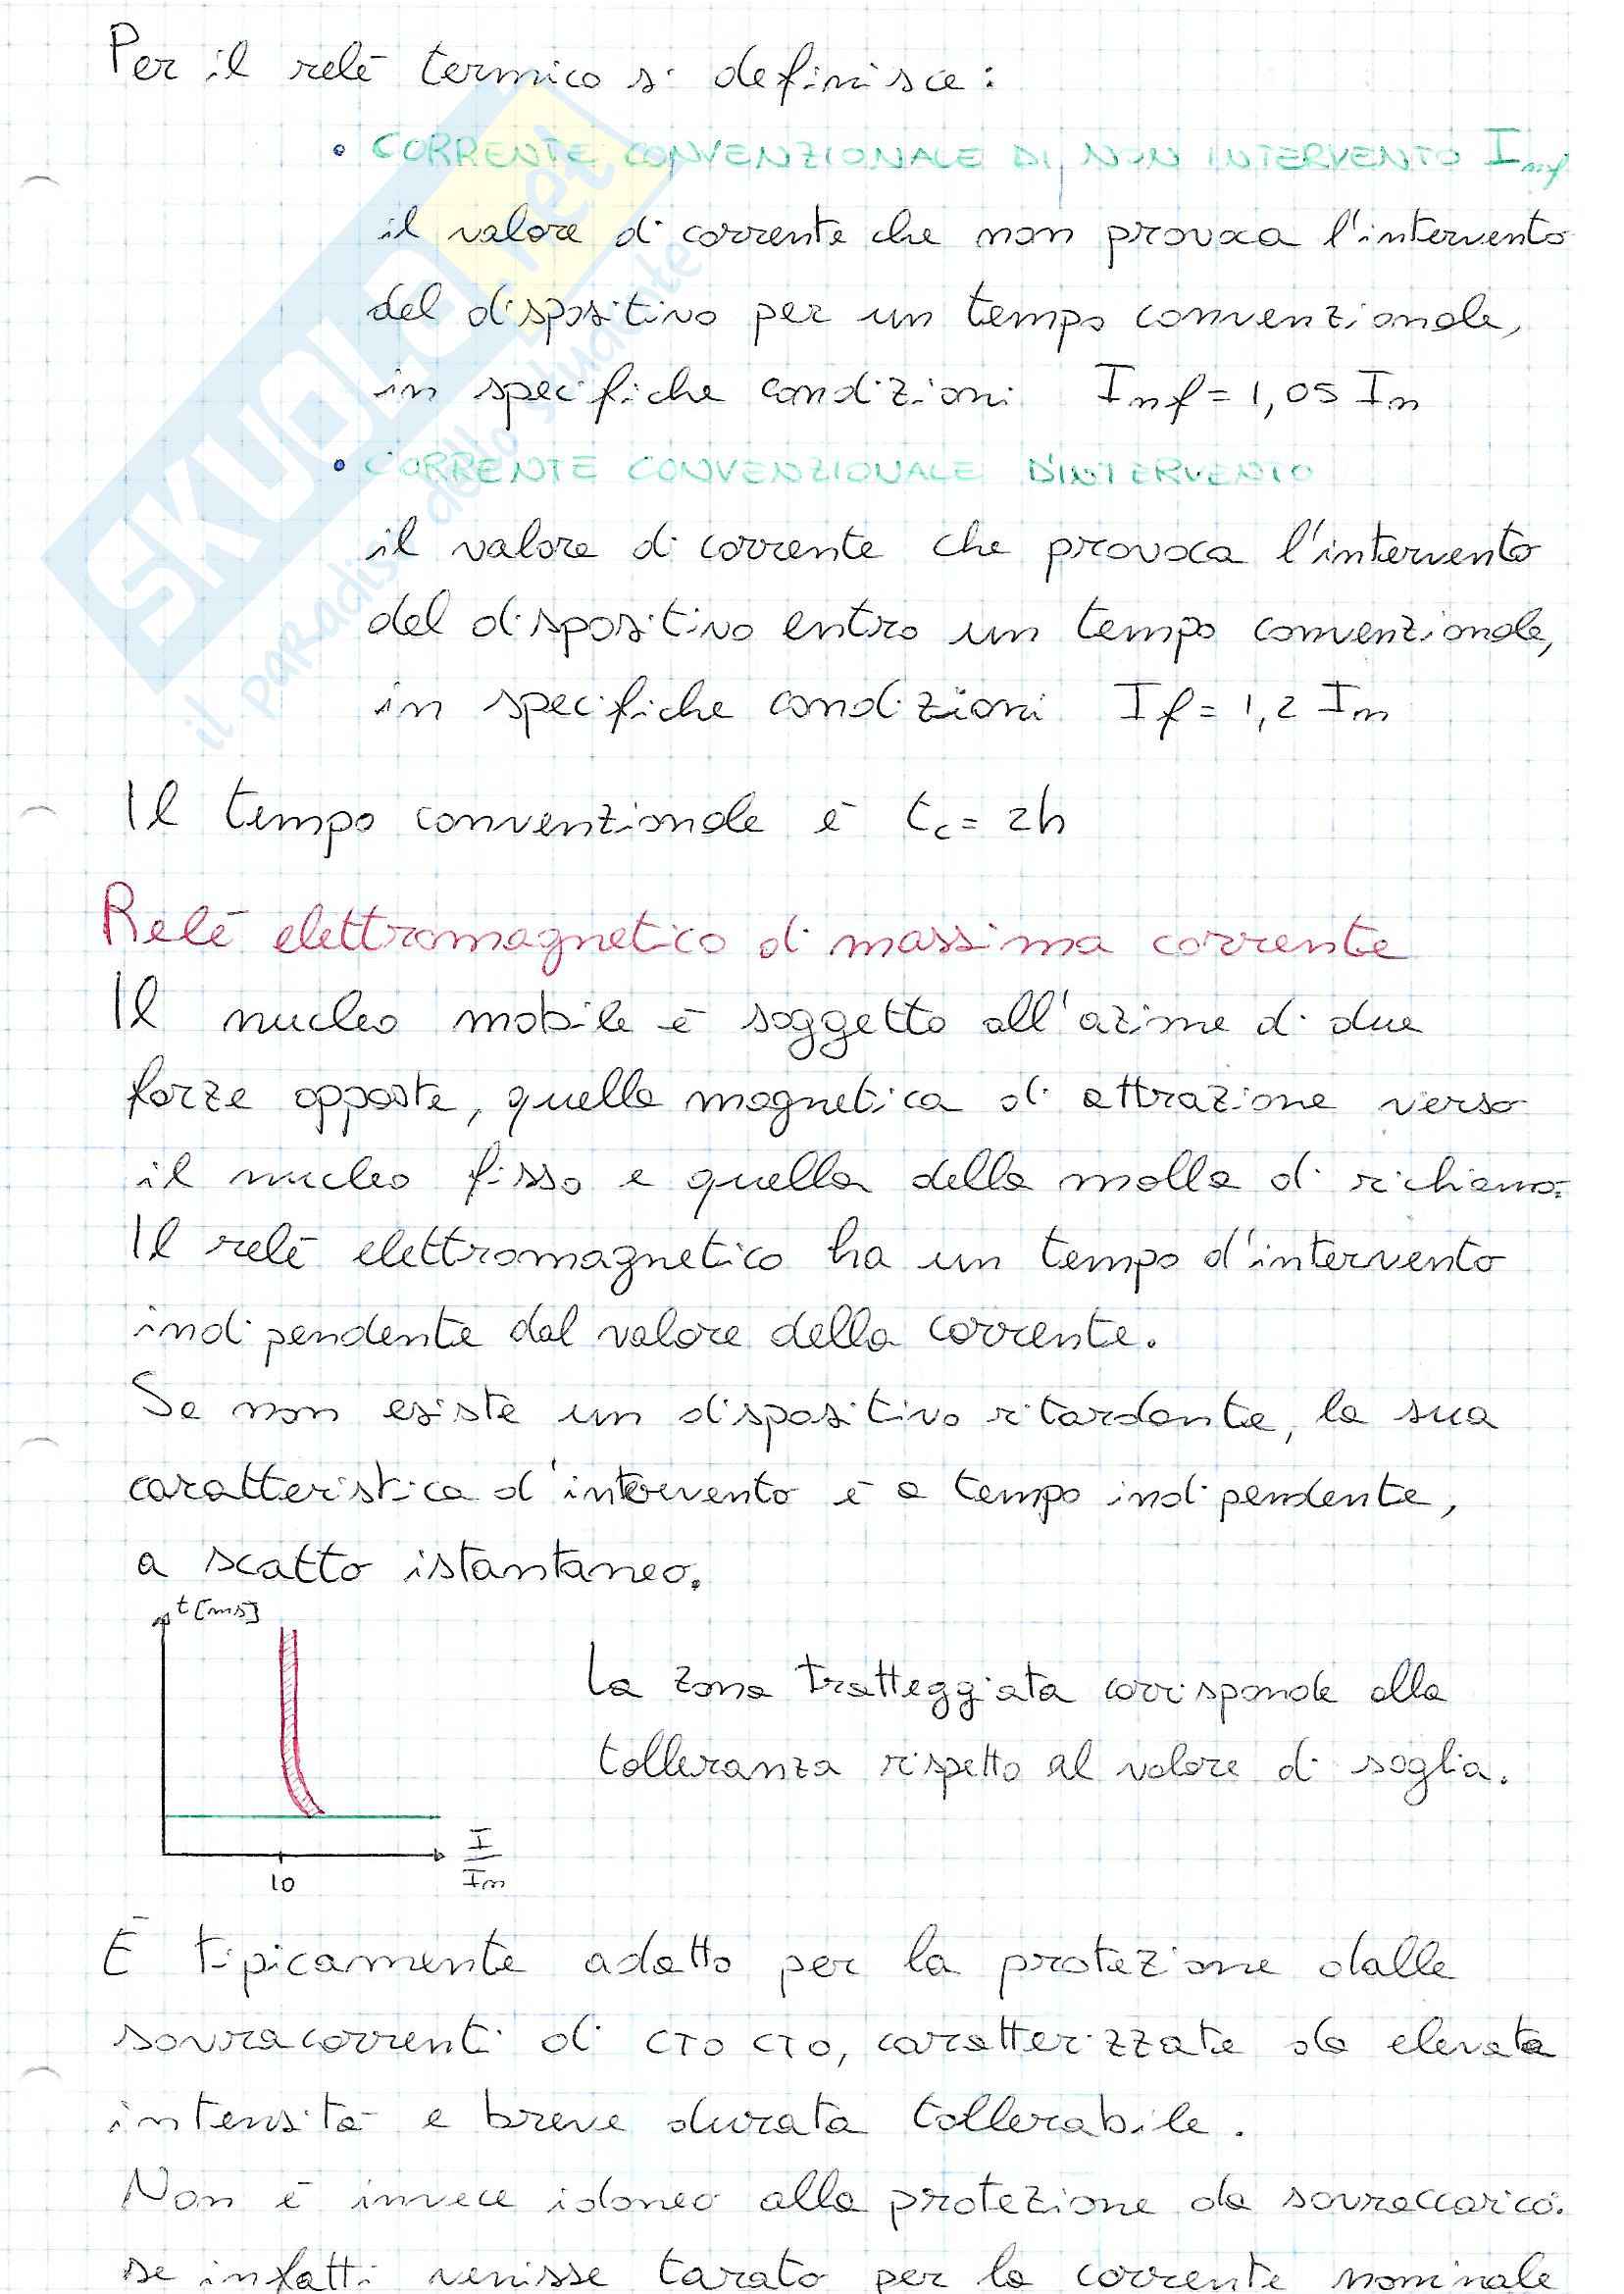 Per il relè termico si definisce:
• CORRENTE CONVENZIONALE DI NON INTERVENTO Inf
il valore di corrente che non provoca l'intervento
del dispositivo per un tempo convenzionale,
in specifiche condizioni Inf = 1,05 In
• CORRENTE CONVENZIONALE D'INTERVENTO
il valore di corrente che provoca l'intervento
del dispositivo entro un tempo convenzionale,
in specifiche condizioni If = 1,2 In
Il tempo convenzionale è tc = 2h
Relè elettromagnetico di massima corrente
Il nucleo mobile è soggetto all'azione di due
forze opposte, quella magnetica di attrazione verso
il nucleo fisso e quella della molla di richiamo.
Il relè elettromagnetico ha un tempo d'intervento
indipendente dal valore della corrente.
Se non esiste un dispositivo ritardante, la sua
caratteristica d'intervento è a tempo indipendente,
a scatto istantaneo.
t [ms]
La zona tratteggiata corrisponde alla
tolleranza rispetto al valore di soglia.
10
I/In
È tipicamente adatto per la protezione dalle
sovracorrenti di CTO CTO, caratterizzate da elevata
intensità e breve durata tollerabile.
Non è invece idoneo alla protezione da sovraccarico:
se infatti venisse tarato per la corrente nominale
SKUOLA.net
il paradiso dello studente